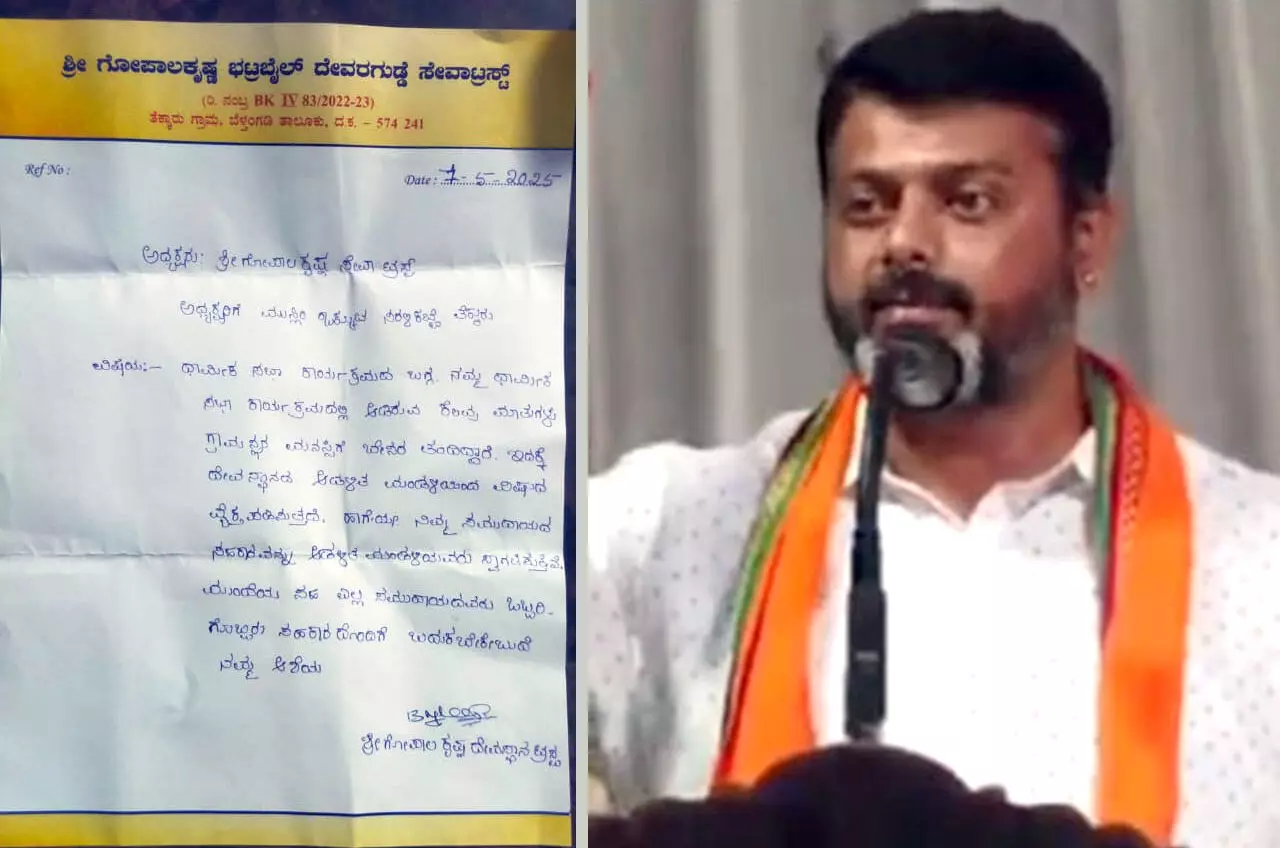 ಶ್ರೀ ಗೋಪಾಲಕೃಷ್ಣ ಭಟ್ರಬೈಲ್ ದೇವರಗುಡ್ಡೆ ಸೇವಾಟ್ರಸ್ಟ್
(ರಿ. ನಂಬ್ರ BK IV 83/2022-23)
ತೆಕ್ಕಾರು ಗ್ರಾಮ, ಬೆಳ್ತಂಗಡಿ ತಾಲೂಕು, ದ.ಕ. – 574 241
Ref No :
Date : 7-5-2025
ಅಧ್ಯಕ್ಷರು: ಶ್ರೀ ಗೋಪಾಲ ಕೃಷ್ಣ ಸೇವಾ ಟ್ರಸ್ಟ್
ಅಧ್ಯಕ್ಷರಿಗೆ ಮುಸ್ಲಿಂ ಒಕ್ಕೂಟ ಸರಳಿಕಟ್ಟೆ ತೆಕ್ಕಾರು
ವಿಷಯ:- ಧಾರ್ಮಿಕ ಸಭಾ ಕಾರ್ಯಕ್ರಮದ ಬಗ್ಗೆ. ನಮ್ಮ ಧಾರ್ಮಿಕ
ಸಭಾ ಕಾರ್ಯಕ್ರಮದಲ್ಲಿ ಆಡಿರುವ ಕೆಲವು ಮಾತುಗಳು
ಗ್ರಾಮಸ್ಥರ ಮನಸ್ಸಿಗೆ ಬೇಸರ ತಂದಿದ್ದಾರೆ. ಇದಕ್ಕೆ
ದೇವಸ್ಥಾನದ ಆಡಳಿತ ಮಂಡಳಿಯಿಂದ ವಿಷಾದ
ವ್ಯಕ್ತಪಡಿಸುತ್ತೇವೆ. ಹಾಗೆಯೇ ನಿಮ್ಮ ಸಮುದಾಯದ
ಸಹಕಾರವನ್ನು ಆಡಳಿತ ಮಂಡಳಿಯವರು ಸ್ವಾಗತಿಸುತ್ತೇವೆ.
ಮುಂದೆಯು ಸಹ ಎಲ್ಲ ಸಮುದಾಯದವರು ಒಬ್ಬರಿ-
ಗೊಬ್ಬರು ಸಹಕಾರದೊಂದಿಗೆ ಬದುಕಬೇಕೇಂಬುದೆ
ನಮ್ಮ ಆಶಯ
ಶ್ರೀ ಗೋಪಾಲ ಕೃಷ್ಣ ದೇವಸ್ಥಾನ ಟ್ರಸ್ಟ್